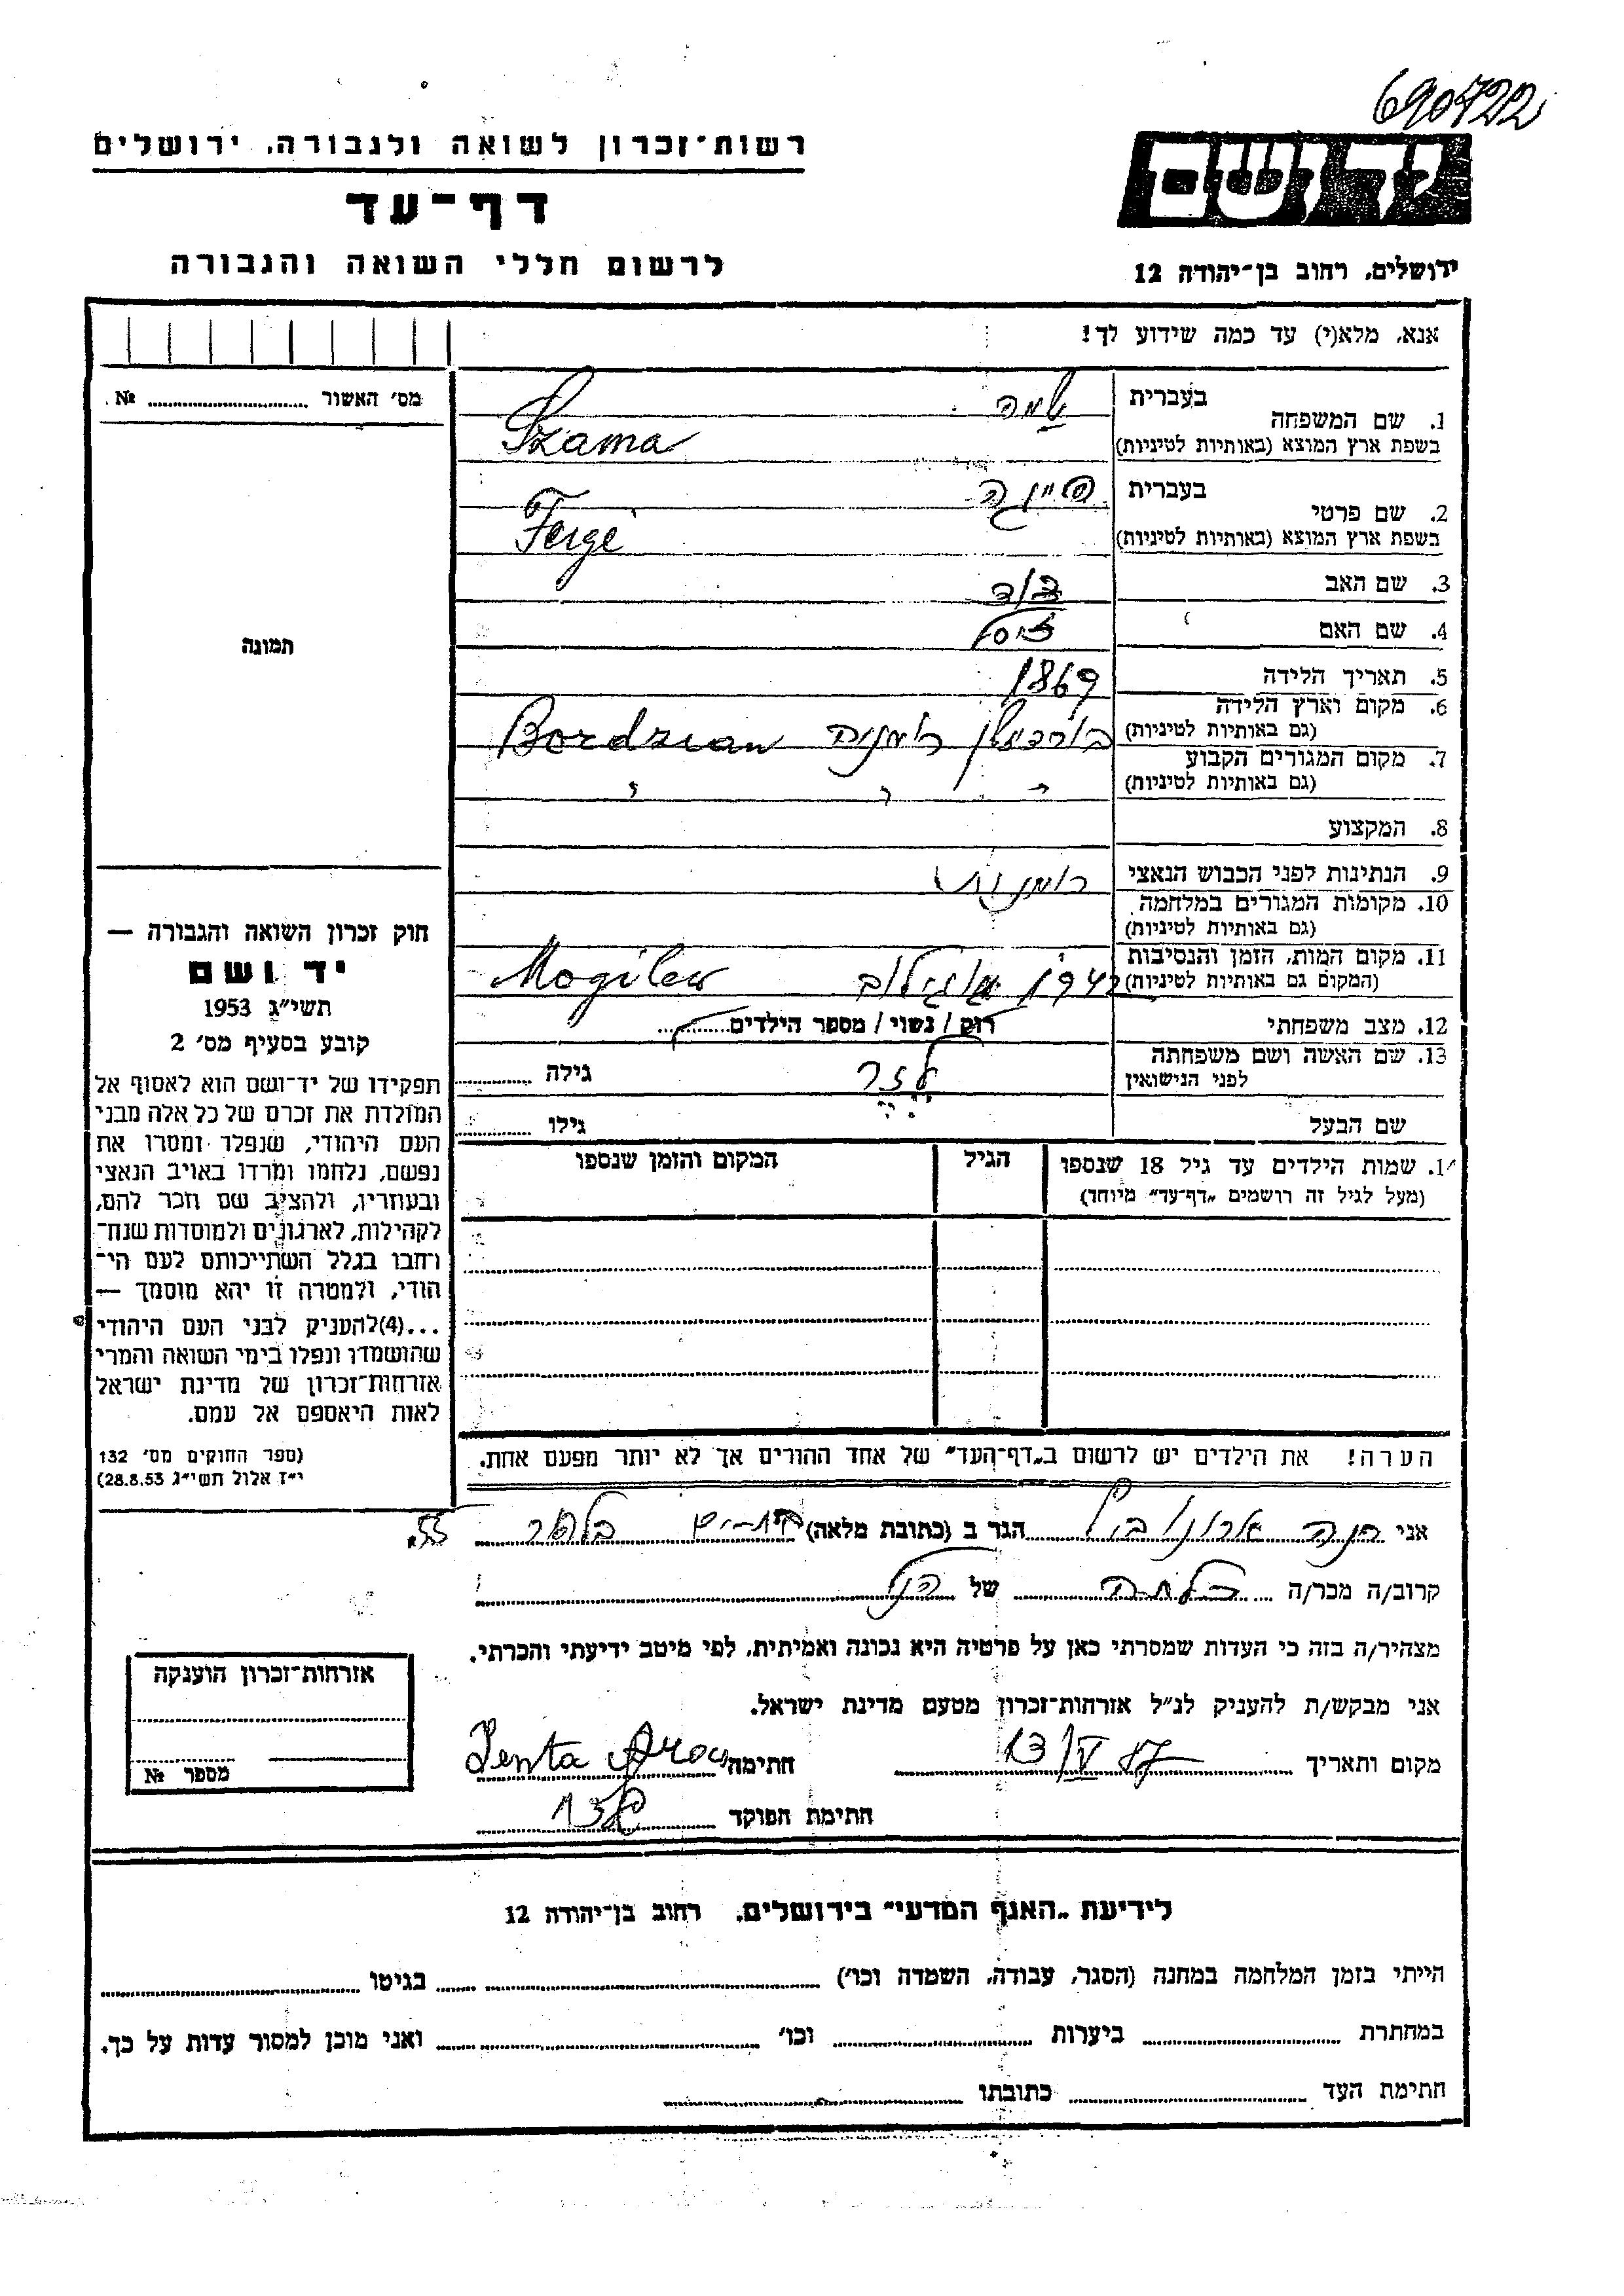 690722
רשות־זכרון לשואה ולגבורה, ירושלים
דף־עד
לרשום חללי השואה והגבורה
יד ושם
ירושלים, רחוב בן־יהודה 12
אנא, מלא(י) עד כמה שידוע לך!
מס׳ האשור № 
1. שם המשפחה
בעברית שמה
בשפת ארץ המוצא (באותיות לטיניות) Szama
2. שם פרטי
בעברית פייגה
בשפת ארץ המוצא (באותיות לטיניות) Feige
3. שם האב
4. שם האם
5. תאריך הלידה 1869
6. מקום וארץ הלידה
(גם באותיות לטיניות) רומניה Bordzian
7. מקום המגורים הקבוע
(גם באותיות לטיניות) " " "
8. המקצוע
9. הנתינות לפני הכבוש הנאצי רומנית
10. מקומות המגורים במלחמה
(גם באותיות לטיניות)
11. מקום המות, הזמן והנסיבות
(המקום גם באותיות לטיניות) 1942 מוגילוב Mogilew
12. מצב משפחתי רווק / נשוי / מספר הילדים
13. שם האשה ושם משפחתה
לפני הנישואין גילה
שם הבעל גילו
14. שמות הילדים עד גיל 18 שנספו
(מעל לגיל זה רושמים „דף־עד״ מיוחד)
הגיל
המקום והזמן שנספו
הערה! את הילדים יש לרשום ב„דף־העד״ של אחד ההורים אך לא יותר מפעם אחת.
תמונה
חוק זכרון השואה והגבורה —
יד ושם
תשי״ג 1953
קובע בסעיף מס׳ 2
תפקידו של יד־ושם הוא לאסוף אל
המולדת את זכרם של כל אלה מבני
העם היהודי, שנפלו ומסרו את
נפשם, נלחמו ומרדו באויב הנאצי
ובעוזריו, ולהציב שם וזכר להם,
לקהילות, לארגונים ולמוסדות שנח־
רחבו בגלל השתייכותם לעם הי־
הודי, ולמטרה זו יהא מוסמך —
...(4)להעניק לבני העם היהודי
שהושמדו ונפלו בימי השואה והמרי
אזרחות־זכרון של מדינת ישראל
לאות היאספם אל עמם.
(ספר החוקים מס׳ 132
י״ז אלול תשי״ג 28.8.53)
אני חנה הגר ב (כתובת מלאה) 55
קרוב/ה מכר/ה כלתה של הנ״ל
מצהיר/ה בזה כי העדות שמסרתי כאן על פרטיה היא נכונה ואמיתית, לפי מיטב ידיעתי והכרתי.
אני מבקש/ת להעניק לנ״ל אזרחות־זכרון מטעם מדינת ישראל.
מקום ותאריך 13/V 57 חתימה
חתימת הפוקד
אזרחות־זכרון הוענקה
מספר №
לידיעת „האגף המדעי״ בירושלים, רחוב בן־יהודה 12
הייתי בזמן המלחמה במחנה (הסגר, עבודה, השמדה וכו׳) בגיטו
במחתרת ביערות וכו׳ ואני מוכן למסור עדות על כך.
חתימת העד כתובתו